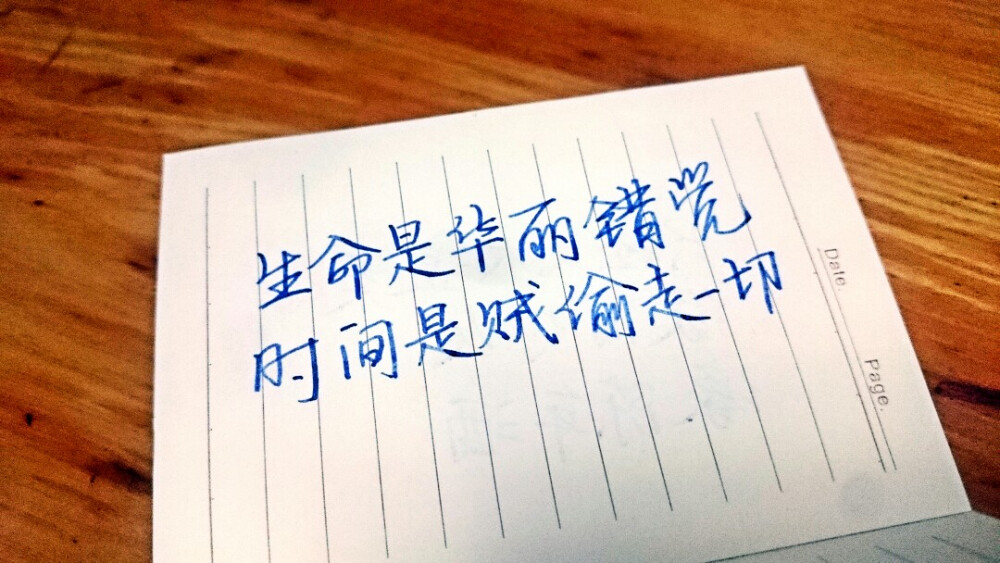 生命是华丽错觉
时间是贼偷走一切
Date.
Page.